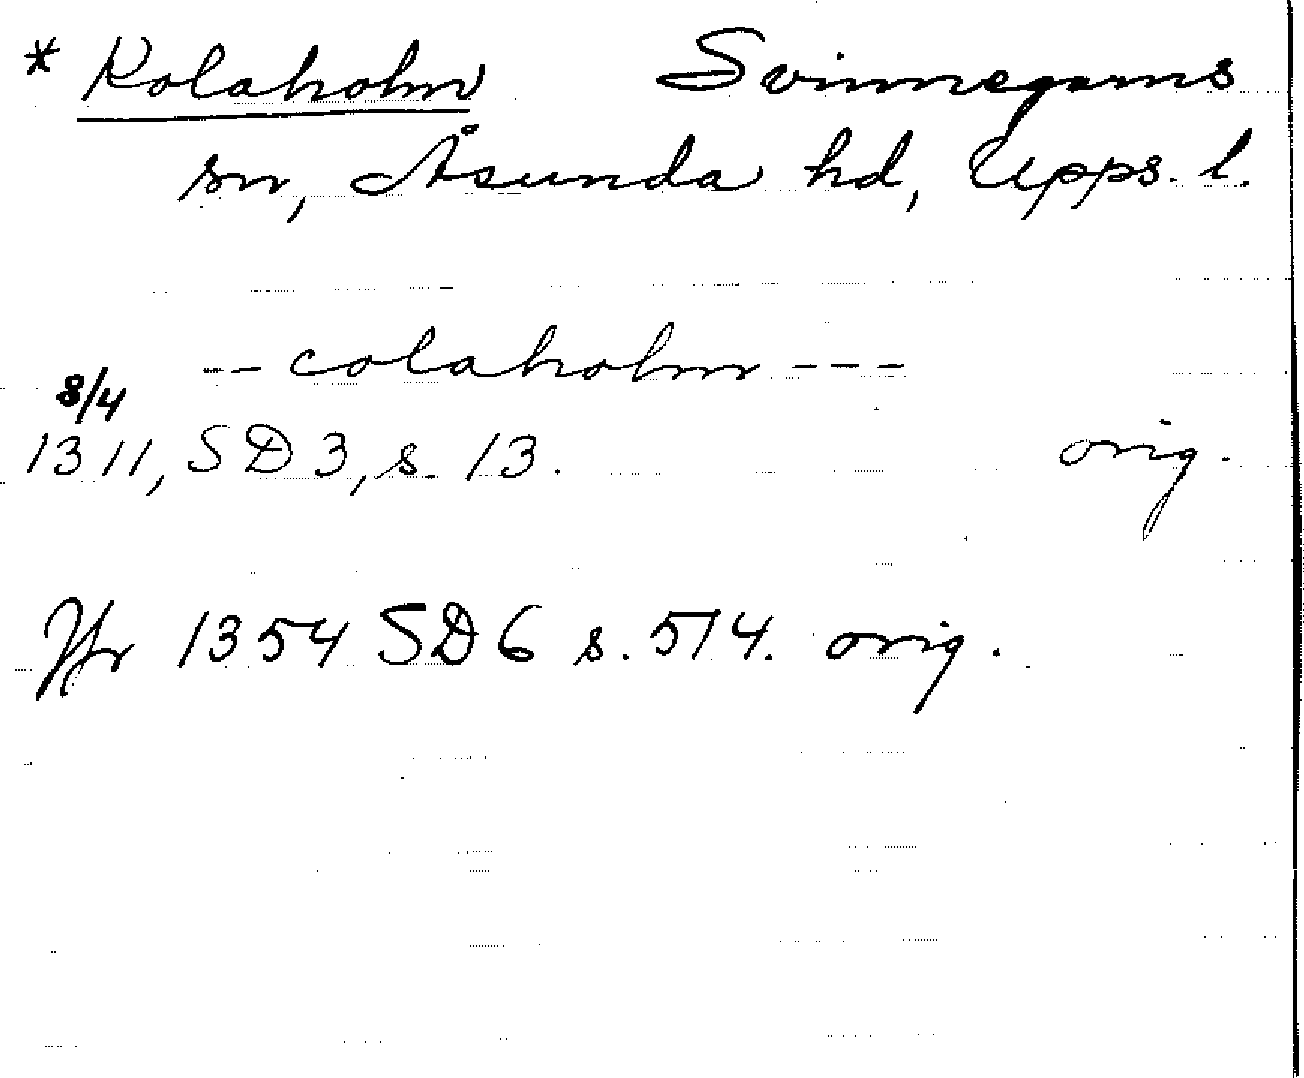 * Kolaholm Svinnegarns
sn, Åsunda hd, Upps. l.
-- colaholm ---
8/4
1311, SD 3, s. 13. orig.
Jfr 1354 SD 6 s. 514. orig.